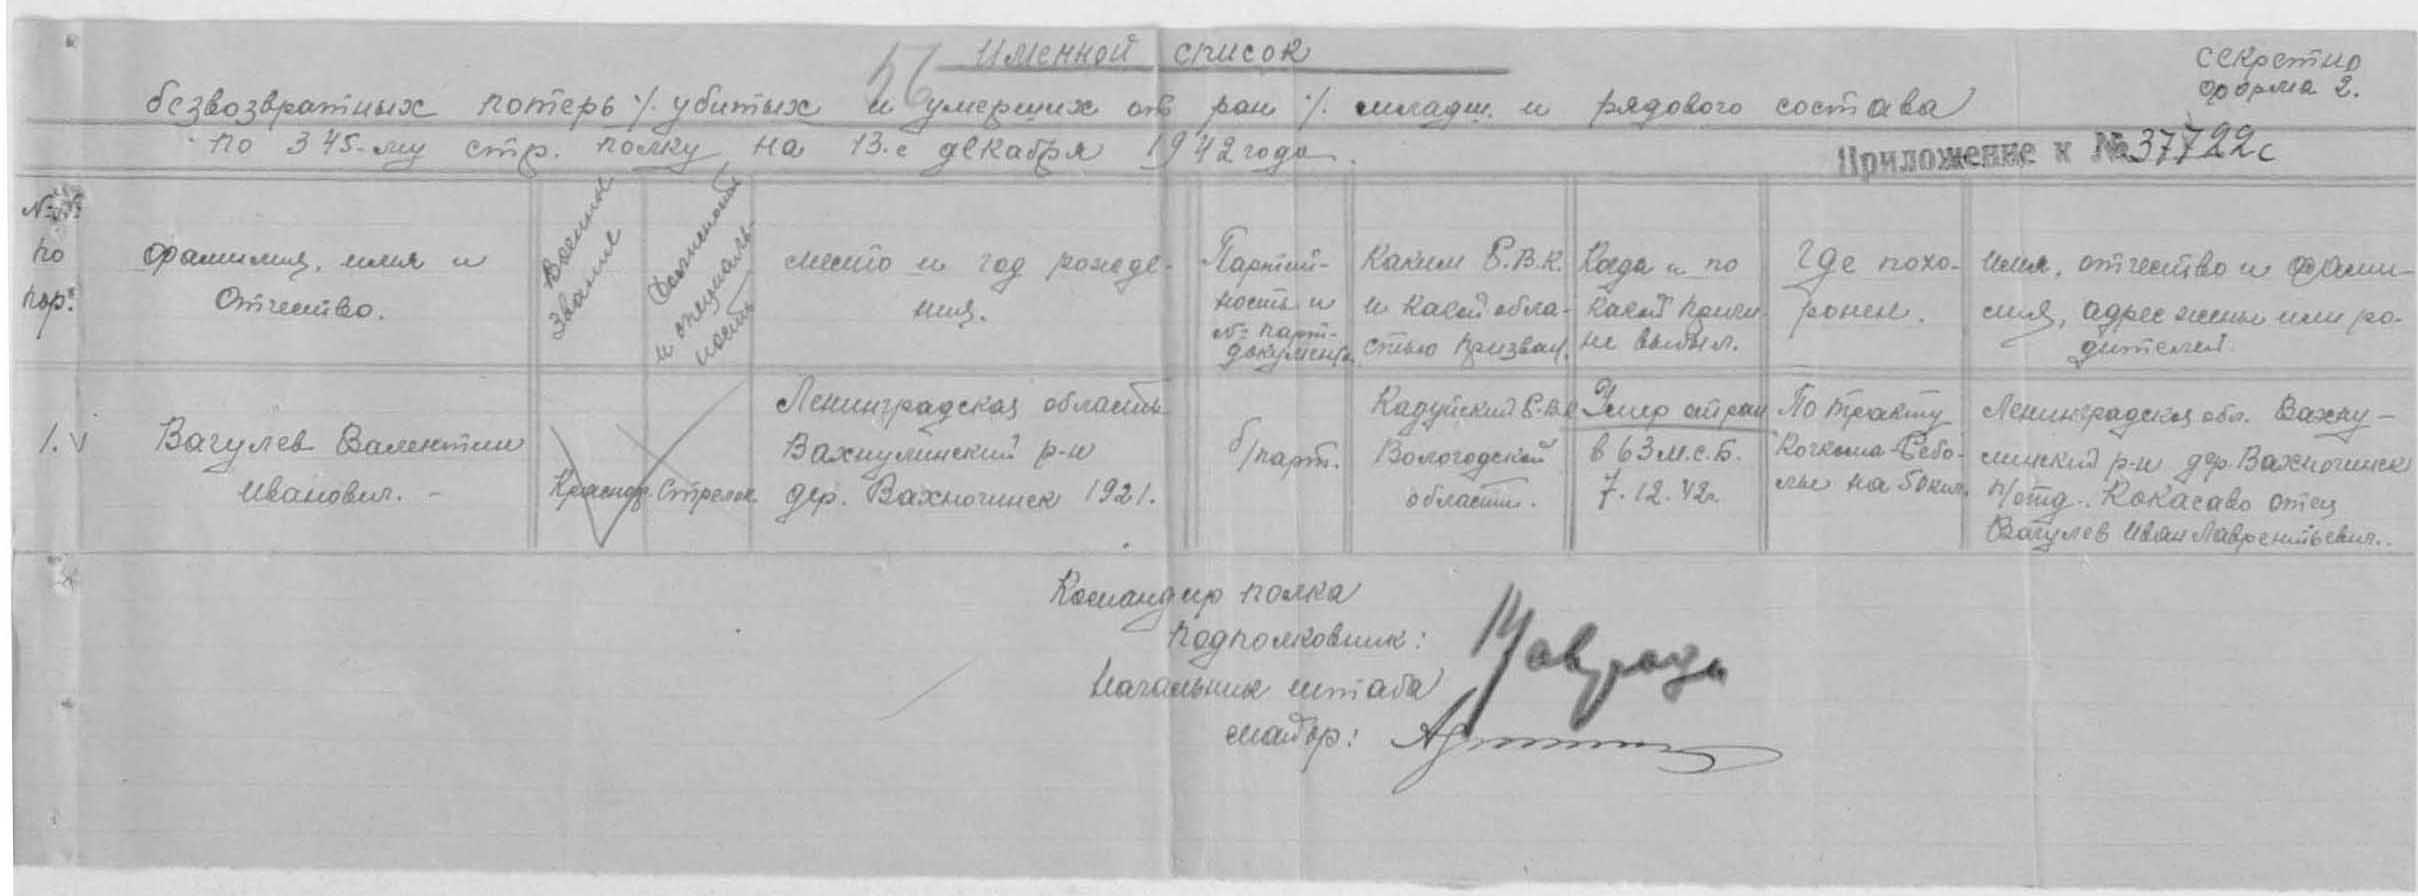 Именной список
Секретно
форма 2.
56
безвозвратных потерь /. убитых и умерших от ран /. младш. и рядового состава
по 345-му стр. полку на 13-е декабря 1942 года.
Приложение к № 37722с
№№ по пор.
Фамилия, имя и
Отчество.
Военные
звание
Должность
и специаль-
ность
место и год рожде-
ния.
Партий-
ность и
№ парт-
документа
Каким Р.В.К.
и какой обла-
стью призван.
Когда и по
какой причи
не выбыл.
Где похо-
ронен.
Имя, отчество и фами-
лия, адрес жены или ро-
дителей.
1. V
Вагулев Валентин
Иванович. -
Красноар.
Стрелок
Ленинградская область
Вахнулинский р-н
дер. Вахночинск 1921.
б/парт.
Кадуйский Р.В.К
Вологодской
области.
Умер от ран
в 63 м.с.б.
7.12.42г.
По тракту
Кочкома-Ребо-
лы на 50 км.
Ленинградская обл. Вахну-
линский р-н дер. Вахночинск
п/отд. Кокасаво отец
Вагулев Иван Лаврентьевич.
Командир полка
подполковник:
Начальник штаба
майор: